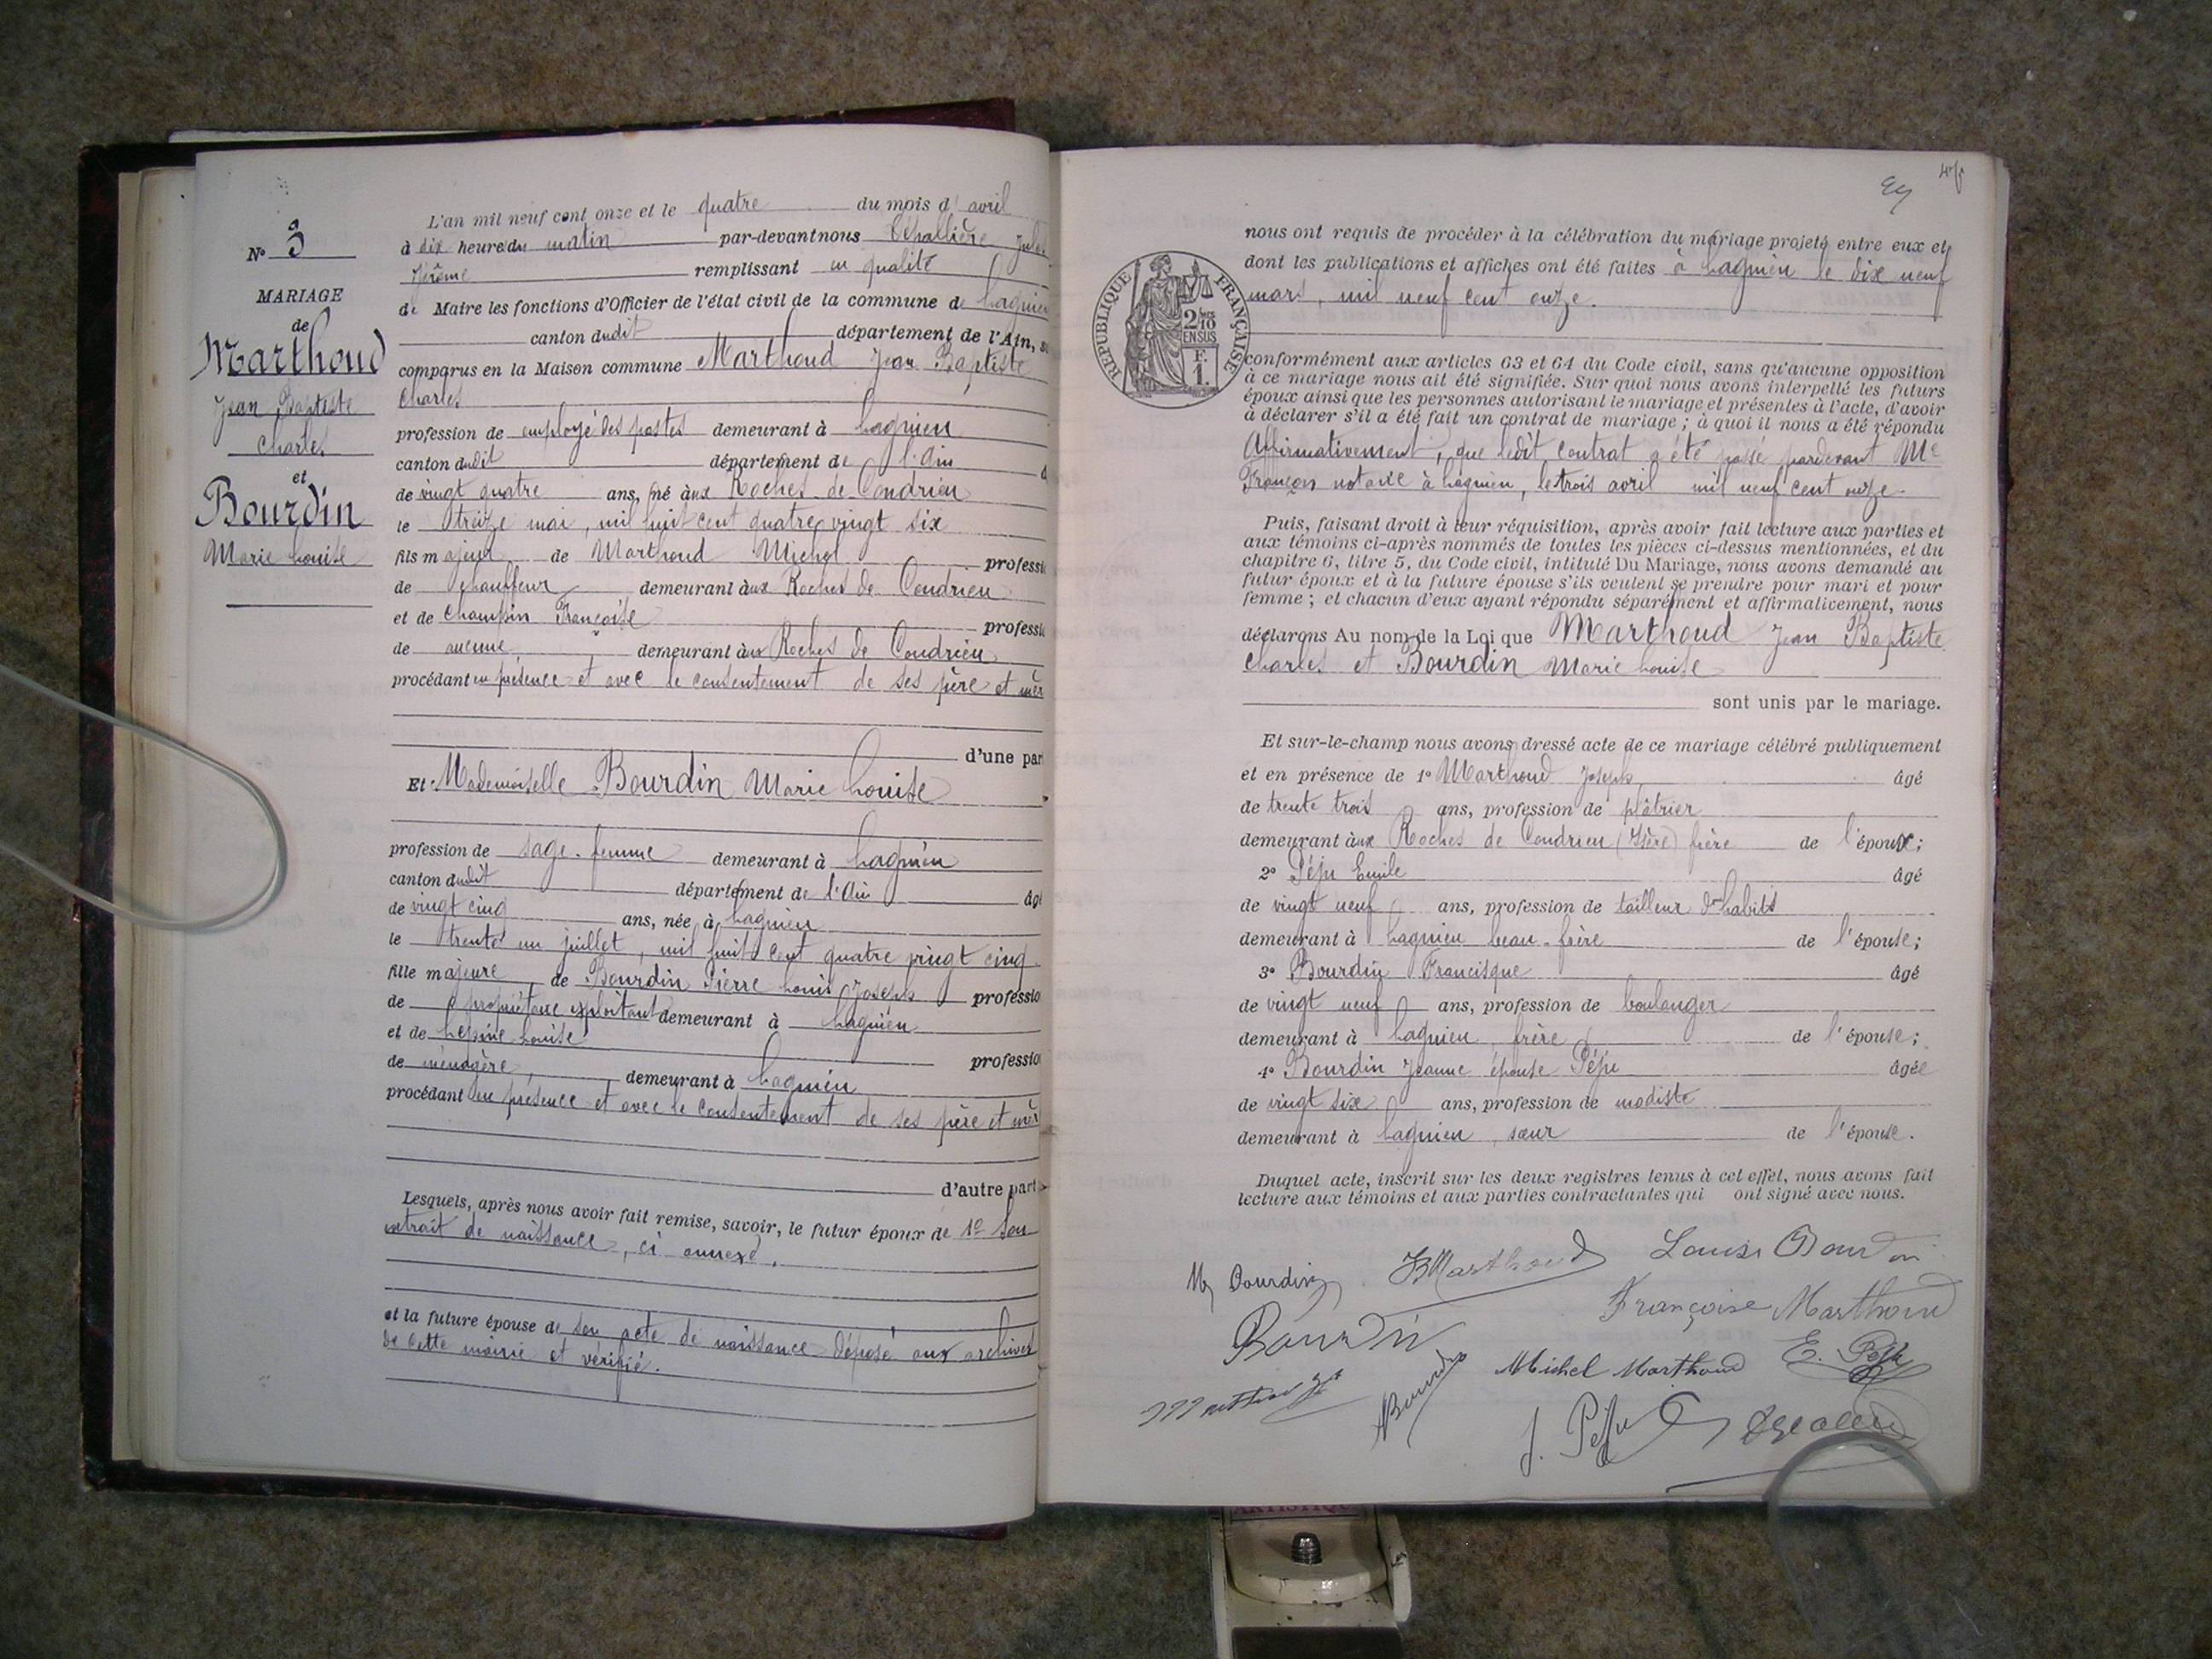 N° 3
MARIAGE
de
Marthoud
Jean Baptiste
Charles
et
Bourdin
Marie Louise
L'an mil neuf cent onze et le quatre du mois d'avril
à dix heure du matin par-devant nous Jules
Jérôme remplissant en qualité
de Maire les fonctions d'Officier de l'état civil de la commune de Lagnieu
canton dudit département de l'Ain, s
comparus en la Maison commune Marthoud Jean Baptiste
Charles
profession de employé des postes demeurant à Lagnieu
canton dudit département de l'Ain
de vingt quatre ans, né aux Roches de Condrieu
le treize mai, mil huit cent quatre vingt six
fils majeur de Marthoud Michel professi
de chauffeur demeurant aux Roches de Condrieu
et de Champin Françoise professi
de aucune demeurant aux Roches de Condrieu
procédant en présence et avec le consentement de ses père et mèr
d'une par
Et Mademoiselle Bourdin Marie Louise
profession de sage-femme demeurant à Lagnieu
canton dudit département de l'Ain âg
de vingt cinq ans, née à Lagnieu
le trente un juillet, mil huit cent quatre vingt cinq
fille majeure de Bourdin Pierre Louis Joseph professio
de propriétaire exploitant demeurant à Lagnieu
et de Lépine Louise professio
de ménagère, demeurant à Lagnieu
procédant en présence et avec le consentement de ses père et mèr
d'autre part
Lesquels, après nous avoir fait remise, savoir, le futur époux de 1° Son
extrait de naissance, ci annexé.
et la future épouse de son acte de naissance déposé aux archives
de cette mairie et vérifié.
nous ont requis de procéder à la célébration du mariage projeté entre eux et
dont les publications et affiches ont été faites à Lagnieu le dix neuf
mars, mil neuf cent onze.
RÉPUBLIQUE FRANÇAISE
2/10
EN SUS
F.
1.
conformément aux articles 63 et 64 du Code civil, sans qu'aucune opposition
à ce mariage nous ait été signifiée. Sur quoi nous avons interpellé les futurs
époux ainsi que les personnes autorisant le mariage et présentes à l'acte, d'avoir
à déclarer s'il a été fait un contrat de mariage ; à quoi il nous a été répondu
Affirmativement, que ledit contrat a été passé pardevant Me
Françon notaire à Lagnieu, le trois avril mil neuf cent onze.
Puis, faisant droit à leur réquisition, après avoir fait lecture aux parties et
aux témoins ci-après nommés de toutes les pièces ci-dessus mentionnées, et du
chapitre 6, titre 5, du Code civil, intitulé Du Mariage, nous avons demandé au
futur époux et à la future épouse s'ils veulent se prendre pour mari et pour
femme ; et chacun d'eux ayant répondu séparément et affirmativement, nous
déclarons Au nom de la Loi que Marthoud Jean Baptiste
Charles et Bourdin Marie Louise
sont unis par le mariage.
Et sur-le-champ nous avons dressé acte de ce mariage célébré publiquement
et en présence de 1° Marthoud Joseph, âgé
de trente trois ans, profession de plâtrier
demeurant aux Roches de Condrieu (Isère) frère de l'époux;
2° Péju Emile âgé
de vingt neuf ans, profession de tailleur d'habits
demeurant à Lagnieu beau-frère de l'épouse;
3° Bourdin Francisque âgé
de vingt neuf ans, profession de boulanger
demeurant à Lagnieu, frère de l'épouse;
4° Bourdin Jeanne épouse Péju âgée
de vingt six ans, profession de modiste
demeurant à Lagnieu, sœur de l'épouse.
Duquel acte, inscrit sur les deux registres tenus à cet effet, nous avons fait
lecture aux témoins et aux parties contractantes qui ont signé avec nous.
Bourdin Marthoud Louise Bourdin
Françoise Marthoud
Bourdin
Michel Marthoud E. Péju
Bourdin
J. Péju